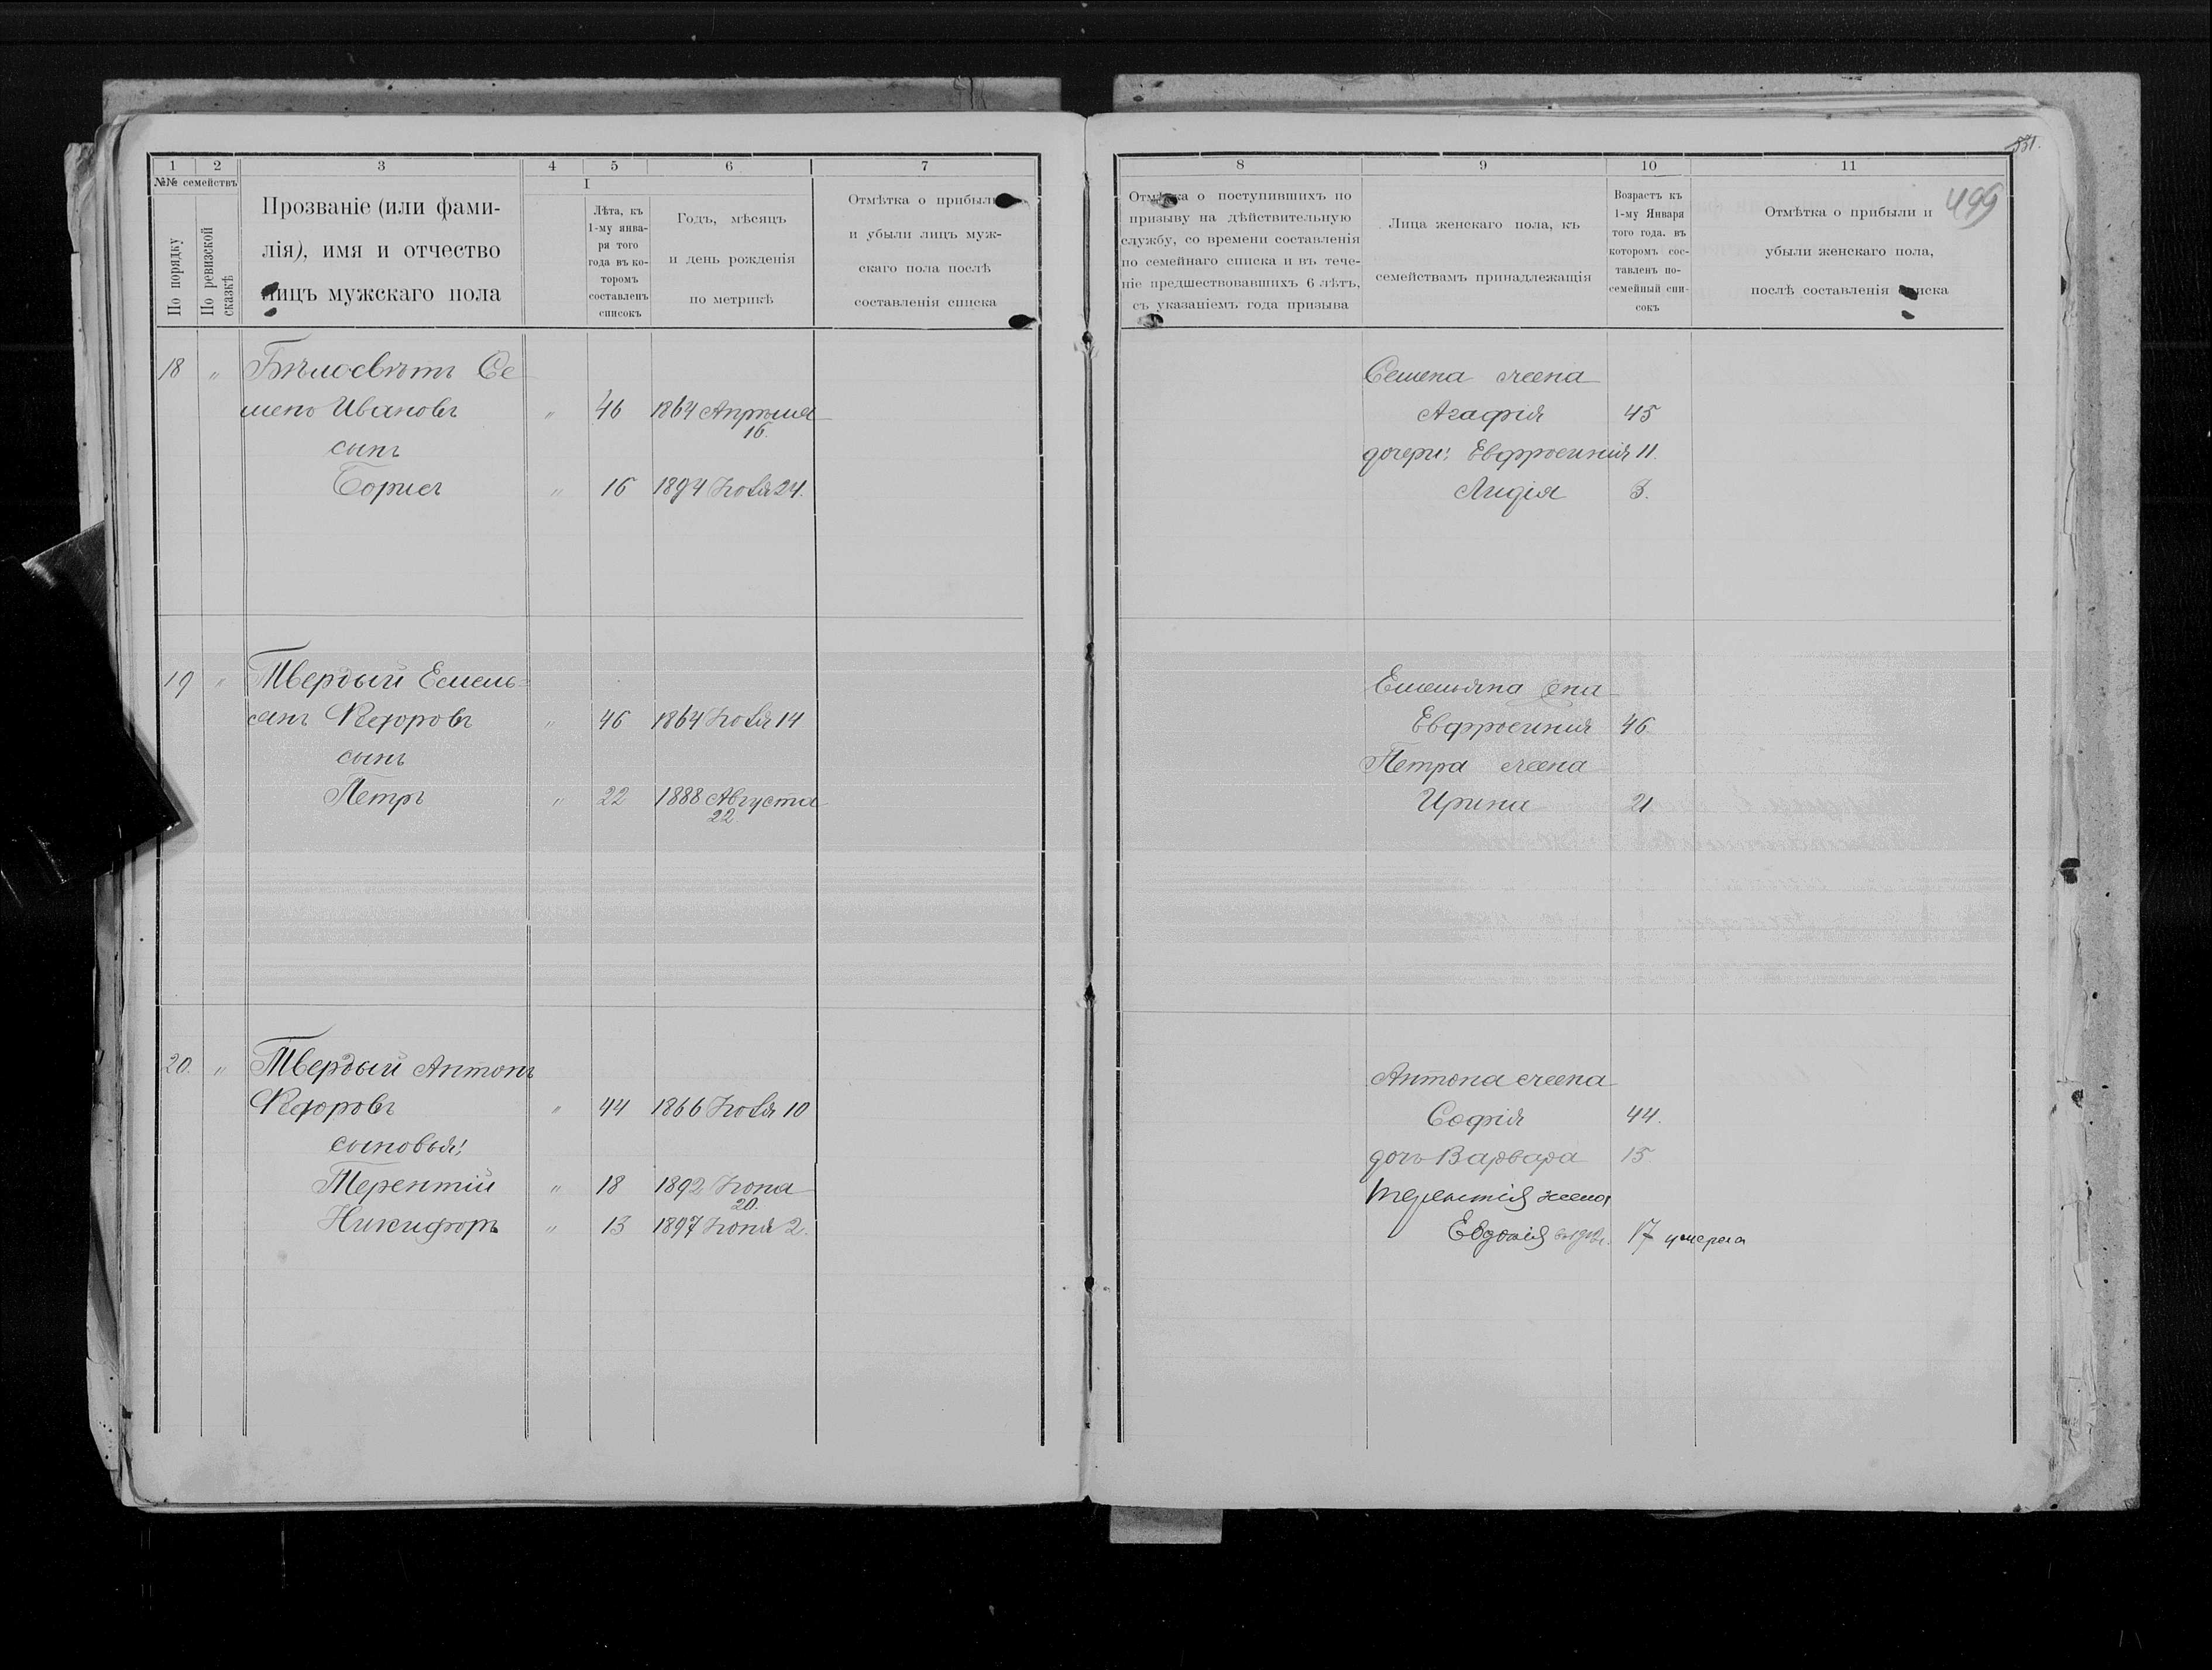 1 2 3 4 5 6 7
№№ семействъ
По порядку
По ревизской сказкѣ
Прозваніе (или фами-
лія), имя и отчество
лицъ мужскаго пола
I
Лѣта, къ
1-му янва-
ря того
года въ ко-
торомъ
составленъ
списокъ
Годъ, мѣсяцъ
и день рожденія
по метрикѣ
Отмѣтка о прибыли
и убыли лицъ муж-
скаго пола послѣ
составленія списка
18 " Бѣлосвѣтъ Се
менъ Ивановъ " 46 1864 Апрѣля
16.
сынъ
Борисъ " 16 1894 Іюля 24.
19 " Твердый Емель-
янъ Ѳедоровъ " 46 1864 Іюля 14
сынъ
Петръ " 22 1888 Августа
22.
20. " Твердый Антонъ
Ѳедоровъ " 44 1866 Іюля 10
сыновья:
Терентій " 18 1892 Іюня
20.
Никифоръ " 13 1897 Іюня 2.
531.
499
8 9 10 11
Отмѣтка о поступившихъ по
призыву на дѣйствительную
службу, со времени составленія
по семейнаго списка и въ тече-
ніе предшествовавшихъ 6 лѣтъ,
съ указаніемъ года призыва
Лица женскаго пола, къ
семействамъ принадлежащія
Возрастъ къ
1-му Января
того года. въ
которомъ сос-
тавленъ по-
семейный спи-
сокъ
Отмѣтка о прибыли и
убыли женскаго пола,
послѣ составленія списка
Семена жена
Агафія 45
дочери: Евфросинія 11.
Лидія 3.
Емельяна жена
Евфросинія 46
Петра жена
Ирина 21
Антона жена
Софія 44.
дочь Варвара 15
Терентія жена
Евдокія 17 умерла